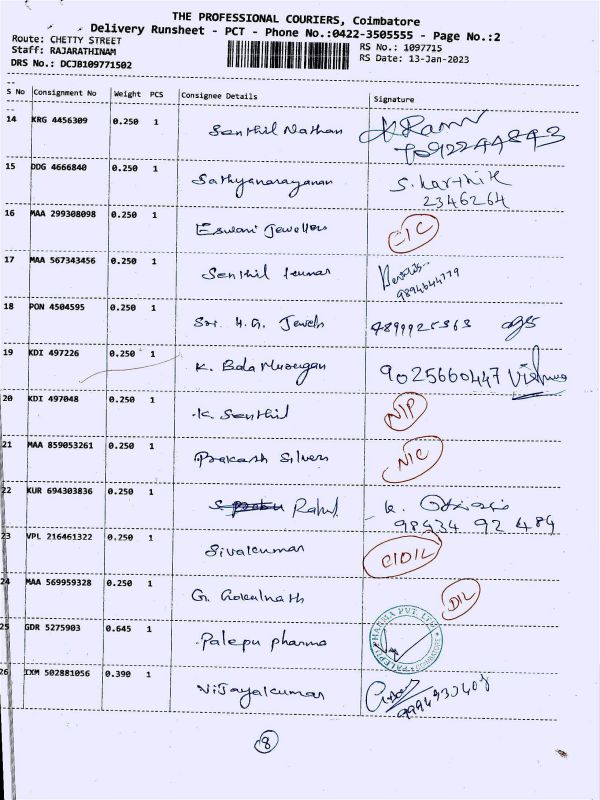 THE PROFESSIONAL COURIERS, Coimbatore
Delivery Runsheet - PCT - Phone No.:0422-3505555 - Page No.:2
Route: CHETTY STREET
RS No.: 1097715
Staff: RAJARATHINAM
RS Date: 13-Jan-2023
DRS No.: DCJB109771502
S No Consignment No Weight PCS Consignee Details Signature
14 KRG 4456309 0.250 1 Senthil Nathan
15 DDG 4666840 0.250 1 Sathyanarayanan S. Karthik
2346264
16 MAA 299308098 0.250 1 Eswari Jewellers CIC
17 MAA 567343456 0.250 1 Senthil kumar
9894644779
18 PON 4504595 0.250 1 Sri. H.G. Jewels
19 KDI 497226 0.250 1 K. Bala Murugan 9025660447 Vishnu
20 KDI 497048 0.250 1 K. Senthil NIP
21 MAA 859053261 0.250 1 Prakash Silvers NIC
22 KUR 694303836 0.250 1 Rahul
98434 92 489
23 VPL 216461322 0.250 1 Sivakumar CIDIL
24 MAA 569959328 0.250 1 G. Gokulnath DIL
25 GDR 5275903 0.645 1 Palepu pharma PALEPU PHARMA PVT. LTD. COIMBATORE
26 IXM 502881056 0.390 1 Vijayakumar
8